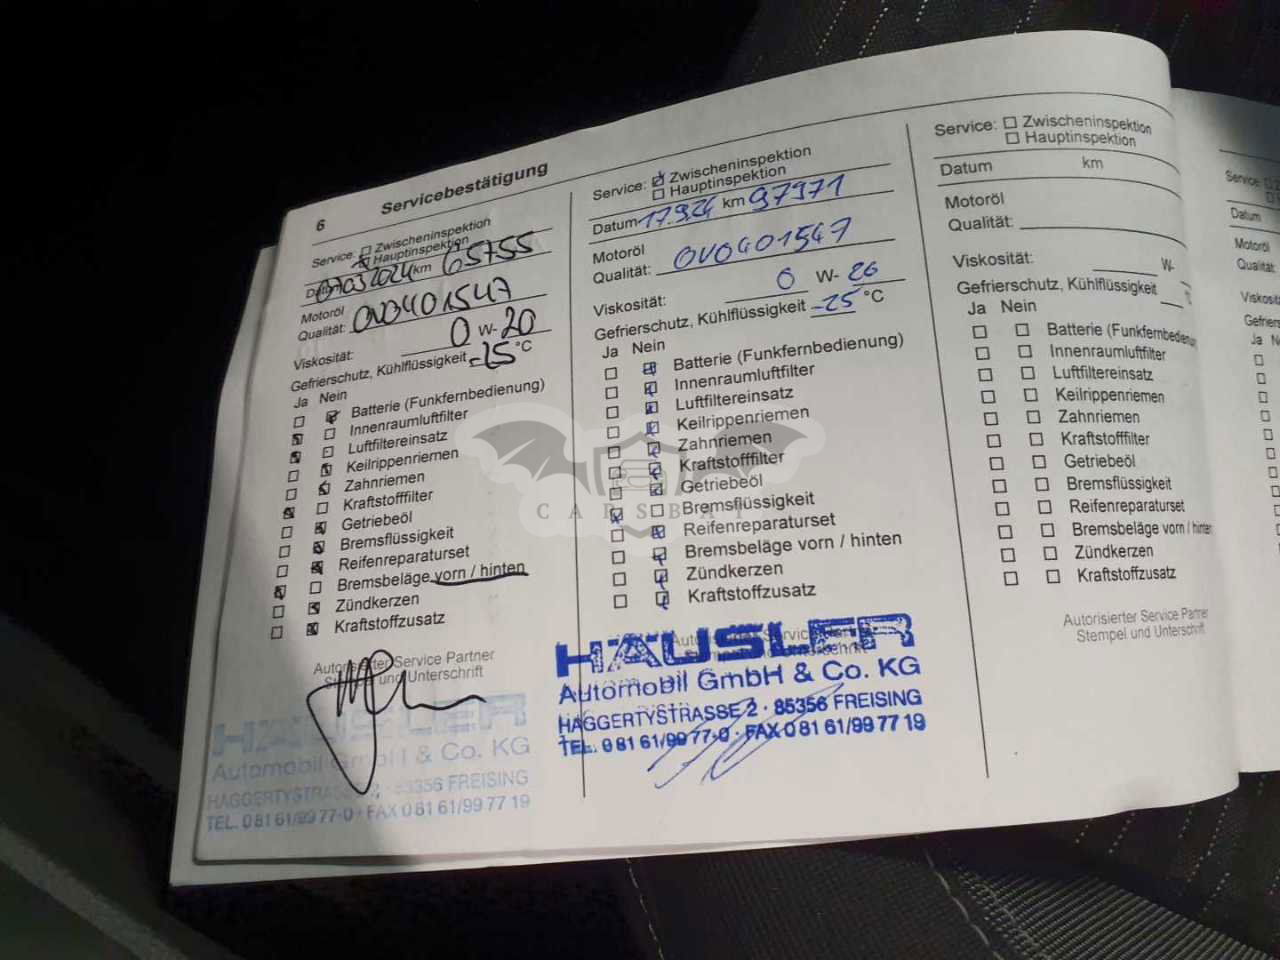 6 Servicebestätigung
Service: Zwischeninspektion
Hauptinspektion
07032024 km 65755
Motoröl
Qualität: OV0401547
Viskosität: 0 W- 20
Gefrierschutz, Kühlflüssigkeit -25 °C
Ja Nein
Batterie (Funkfernbedienung)
Innenraumluftfilter
Luftfiltereinsatz
Keilrippenriemen
Zahnriemen
Kraftstofffilter
Getriebeöl
Bremsflüssigkeit
Reifenreparaturset
Bremsbeläge vorn / hinten
Zündkerzen
Kraftstoffzusatz
Autorisierter Service Partner
Stempel und Unterschrift
HÄUSLER
Automobil GmbH & Co. KG
HAGGERTYSTRASSE 2 · 85356 FREISING
TEL. 0 81 61/99 77-0 · FAX 0 81 61/99 77 19
Service: Zwischeninspektion
Hauptinspektion
Datum 17.9.24 km 97971
Motoröl
Qualität: OV0401547
Viskosität: 0 W- 20
Gefrierschutz, Kühlflüssigkeit -25 °C
Ja Nein
Batterie (Funkfernbedienung)
Innenraumluftfilter
Luftfiltereinsatz
Keilrippenriemen
Zahnriemen
Kraftstofffilter
Getriebeöl
Bremsflüssigkeit
Reifenreparaturset
Bremsbeläge vorn / hinten
Zündkerzen
Kraftstoffzusatz
HÄUSLER
Automobil GmbH & Co. KG
HAGGERTYSTRASSE 2 · 85356 FREISING
TEL. 0 81 61/99 77-0 · FAX 0 81 61/99 77 19
Service: Zwischeninspektion
Hauptinspektion
Datum km
Motoröl
Qualität:
Viskosität: W-
Gefrierschutz, Kühlflüssigkeit
Ja Nein
Batterie (Funkfernbedienung)
Innenraumluftfilter
Luftfiltereinsatz
Keilrippenriemen
Zahnriemen
Kraftstofffilter
Getriebeöl
Bremsflüssigkeit
Reifenreparaturset
Bremsbeläge vorn / hinten
Zündkerzen
Kraftstoffzusatz
Autorisierter Service Partner
Stempel und Unterschrift
Service:
Datum
Motoröl
Qualität:
Ja